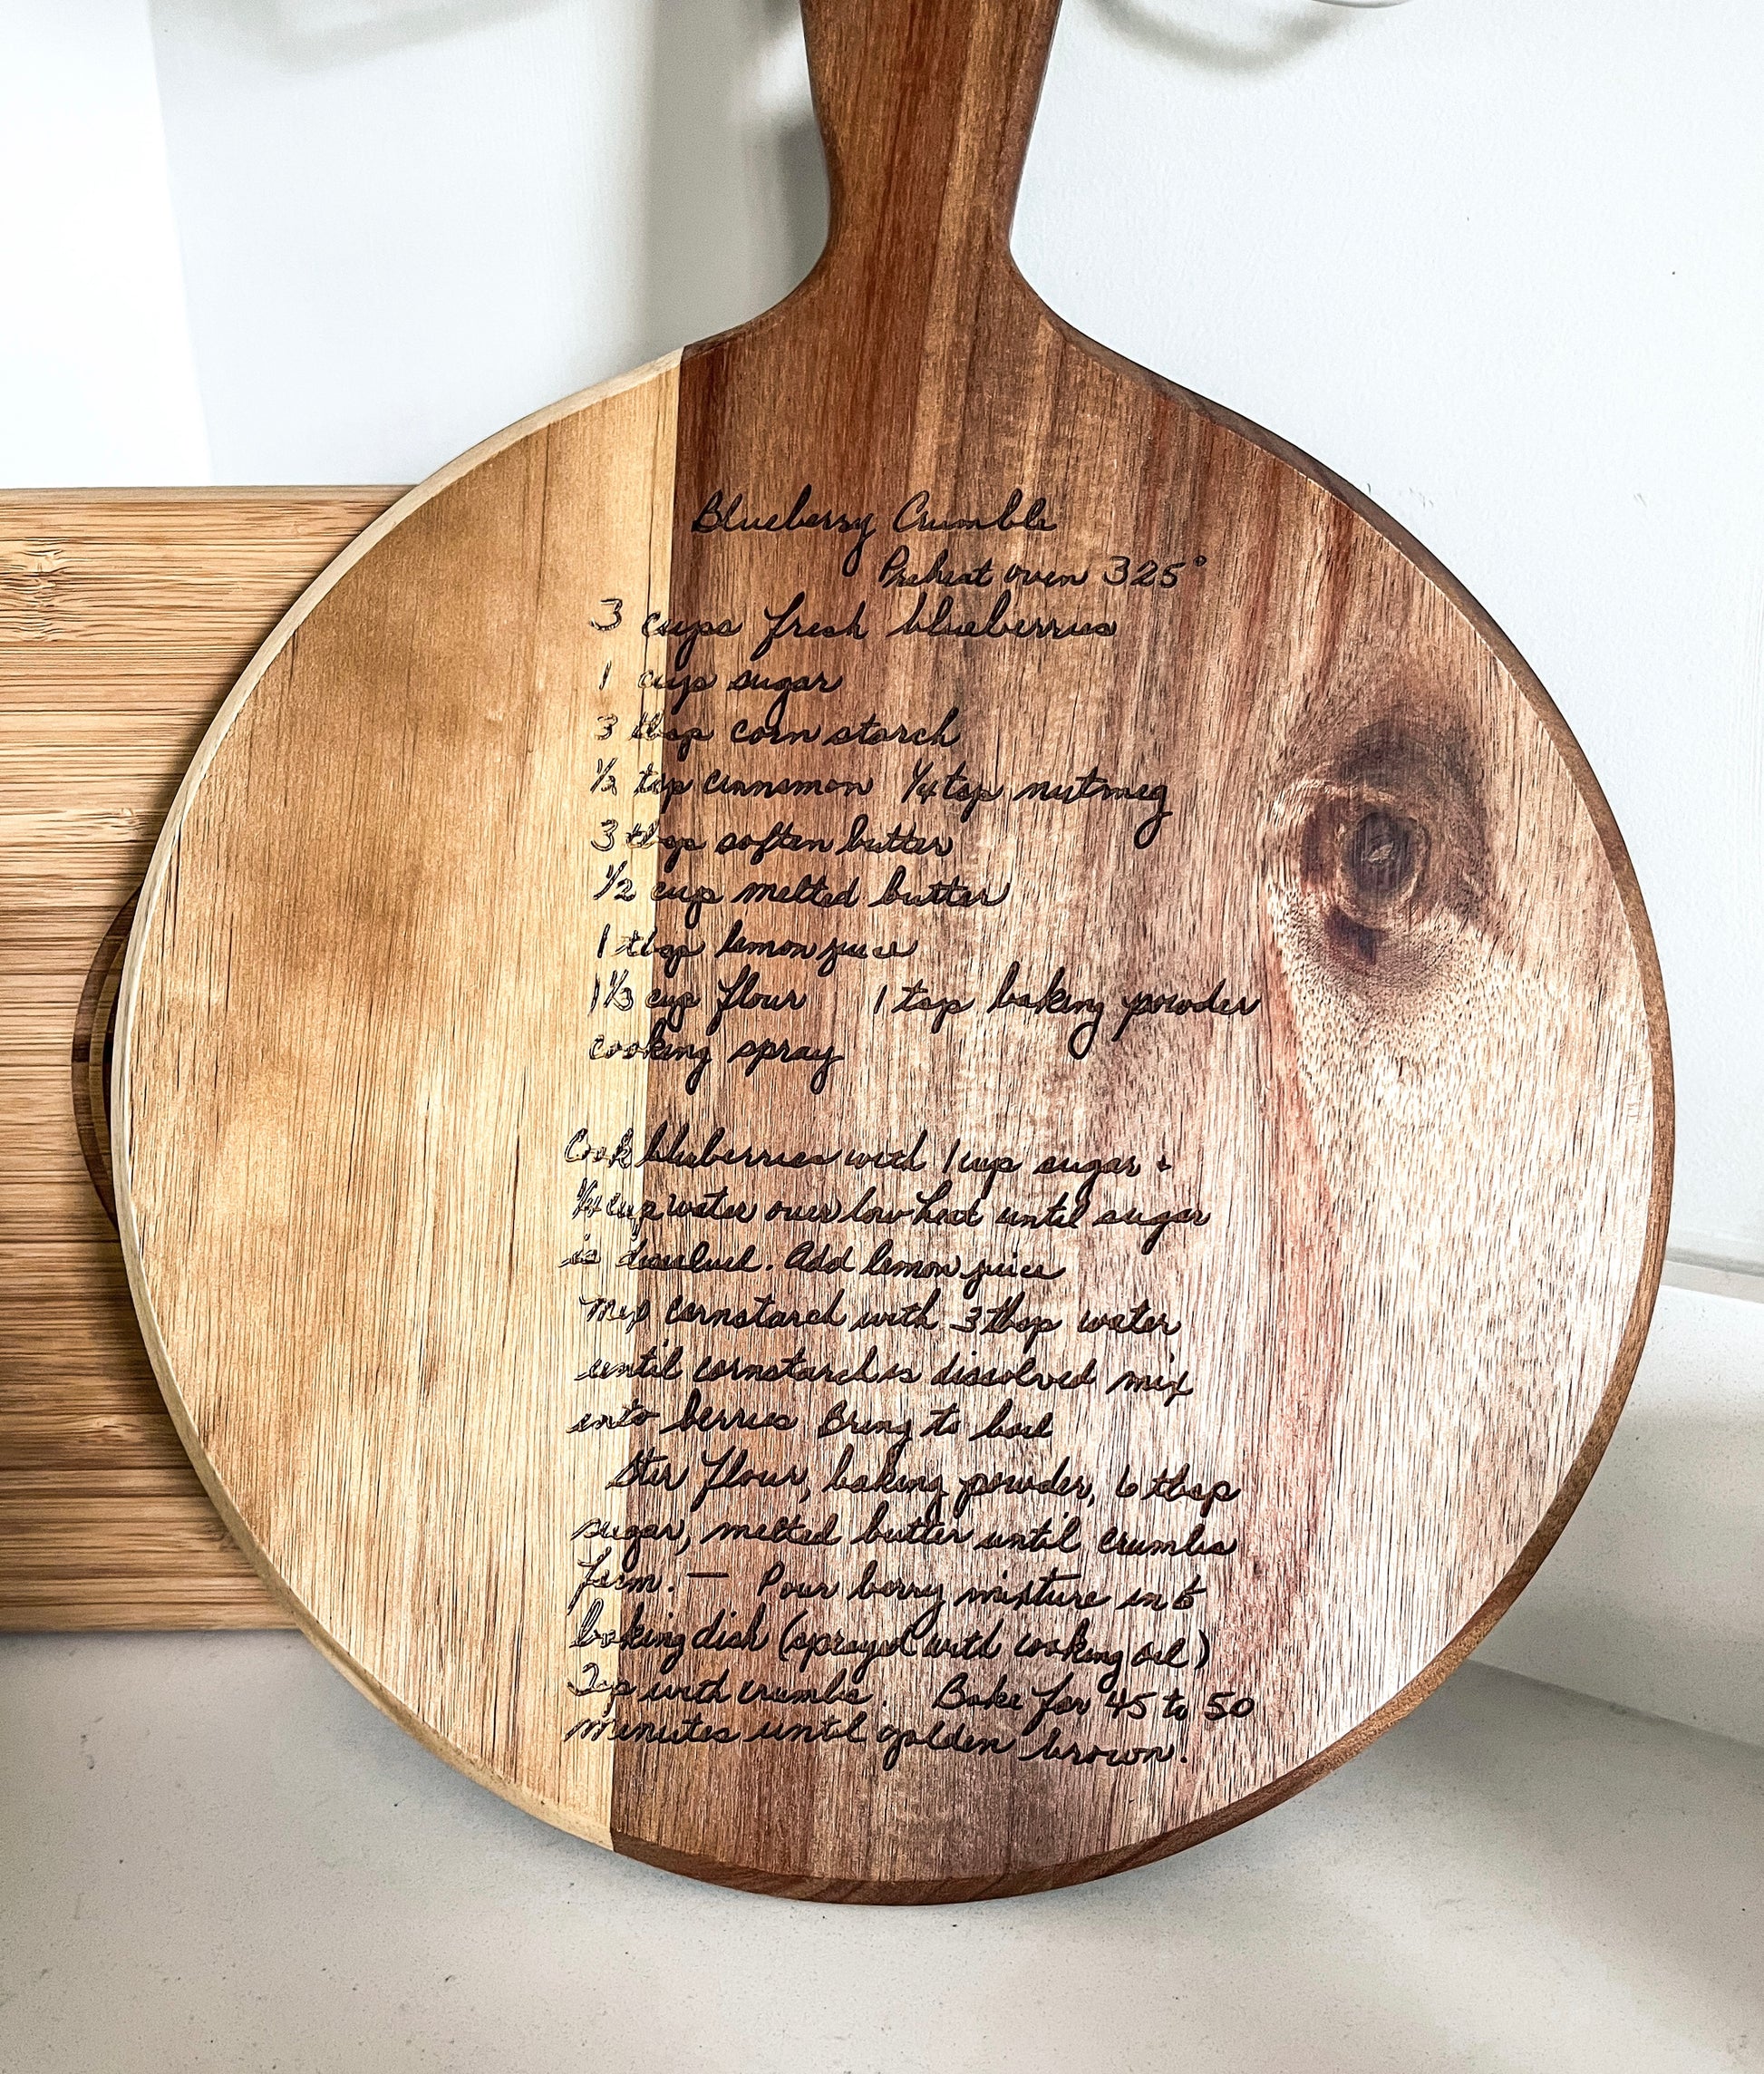 Blueberry Crumble
Preheat oven 325°
3 cups fresh blueberries
1 cup sugar
3 tbsp corn starch
1/2 tsp cinnamon 1/4 tsp nutmeg
3 tbsp soften butter
1/2 cup melted butter
1 tbsp lemon juice
1 1/3 cup flour 1 tsp baking powder
cooking spray
Cook blueberries with 1 cup sugar +
1/4 cup water over low heat until sugar
is dissolved. Add lemon juice
Mix cornstarch with 3 tbsp water
until cornstarch is dissolved mix
into berries Bring to boil
Stir flour, baking powder, 6 tbsp
sugar, melted butter until crumbs
form. — Pour berry mixture into
baking dish (sprayed with cooking oil)
Top with crumbs. Bake for 45 to 50
minutes until golden brown.